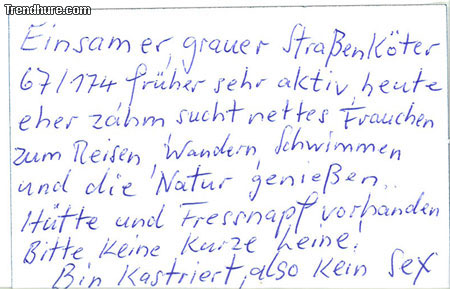 Trendhure.com
Einsamer, grauer Straßenköter
67/174 früher sehr aktiv, heute
eher zahm sucht nettes Frauchen
zum Reisen, Wandern, Schwimmen
und die Natur genießen.
Hütte und Fressnapf vorhanden
Bitte keine kurze Leine!
Bin kastriert, also kein Sex